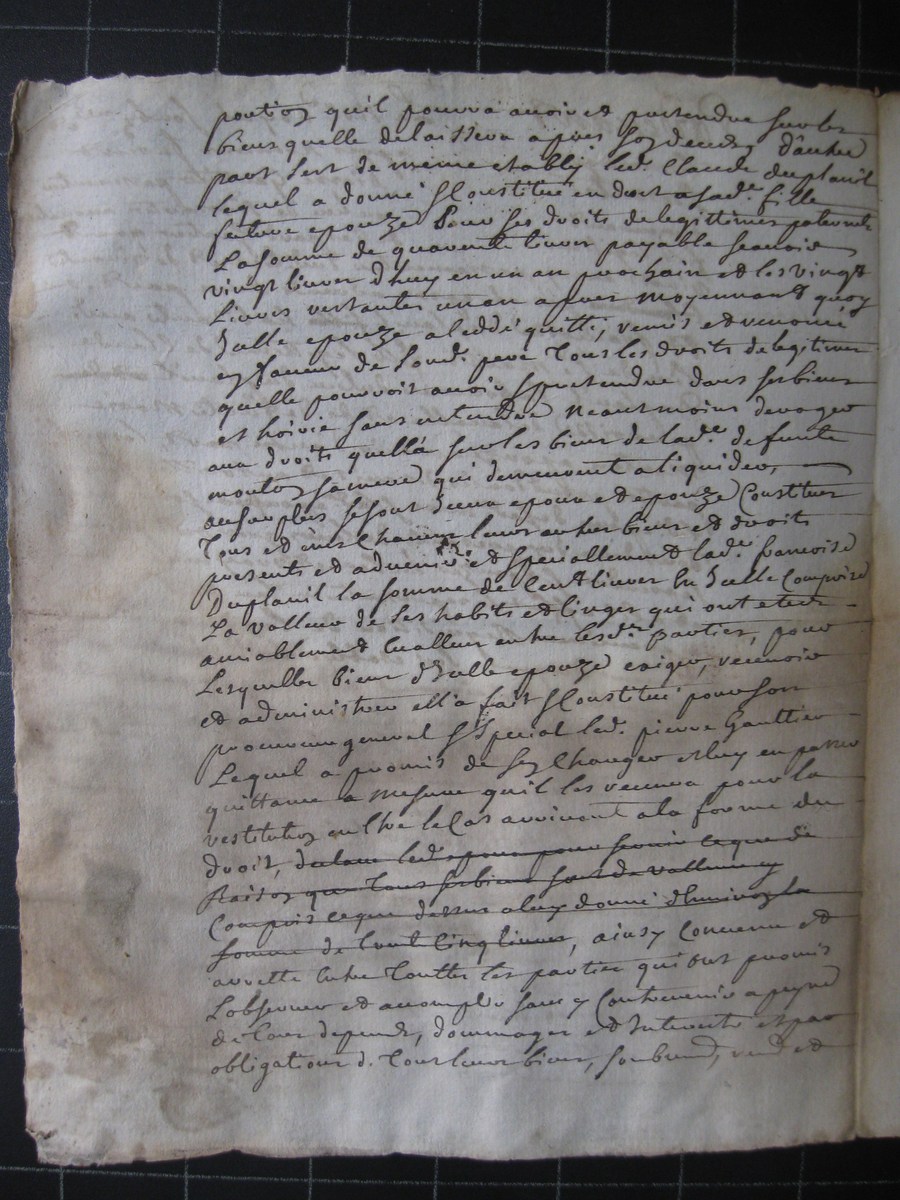 portion quil pourra avoir et pretendre sur les
biens quelle delaissera apres son deceds, d'autre
part sest de même etably led. Claude duplanil
lequel a donné & Constitué en dort a sad.e fille
future epouze Pour ses droits de legittimes paternels
La somme de quarente livres payable scavoir
vingt livres d'huy en un an prochain et les vingt
Livres restantes un an apres moyennant quoy
Icelle epouze a ceddé quitté, remis et renoncé
en faveur de Sond. pere Tous les droits de legitimes
quelle pourroit avoir & pretendre dans ses biens
et hoirie sans entendre neantmoins deroger
aux droits quella sur les biens de lad.e defunte
sa mere qui demeurent a liquider,
au surplus se sont Iceux epoux et epouze Constitués
Tous et uns Chacuns leurs autres biens et droits
presents et advenir et speciallement lad.e francoise
Duplanil la somme de Cent livres En Icelle Comprise
La valleur de ses habits et linges qui ont eté
amiablement Evalluer entre lesd.es parties, pour
Lesquelles biens d'Icelle epouze exiger, recevoir
et administrer ell'a fait & Constitué pour son
procureur general & special led. pierre Gaultier
Lequel a promis de sen Charger et luy en passer
quittance a mesure quil les recevra pour la
restitution en estre le Cas arrivant a la forme du
droit, led. epoux pour
Raison que Tous ses biens sont de valleur y
Compris ce que dessus a luy donné d'environ la
somme de Cent Cinq livres, ainsy Convenu et
arretté Entre Touttes les parties qui ont promis
L'observer et accomplir sans y Contrevenir a peyne
de Tous depends, dommages et Interets et par
obligations de Tous leurs biens, et